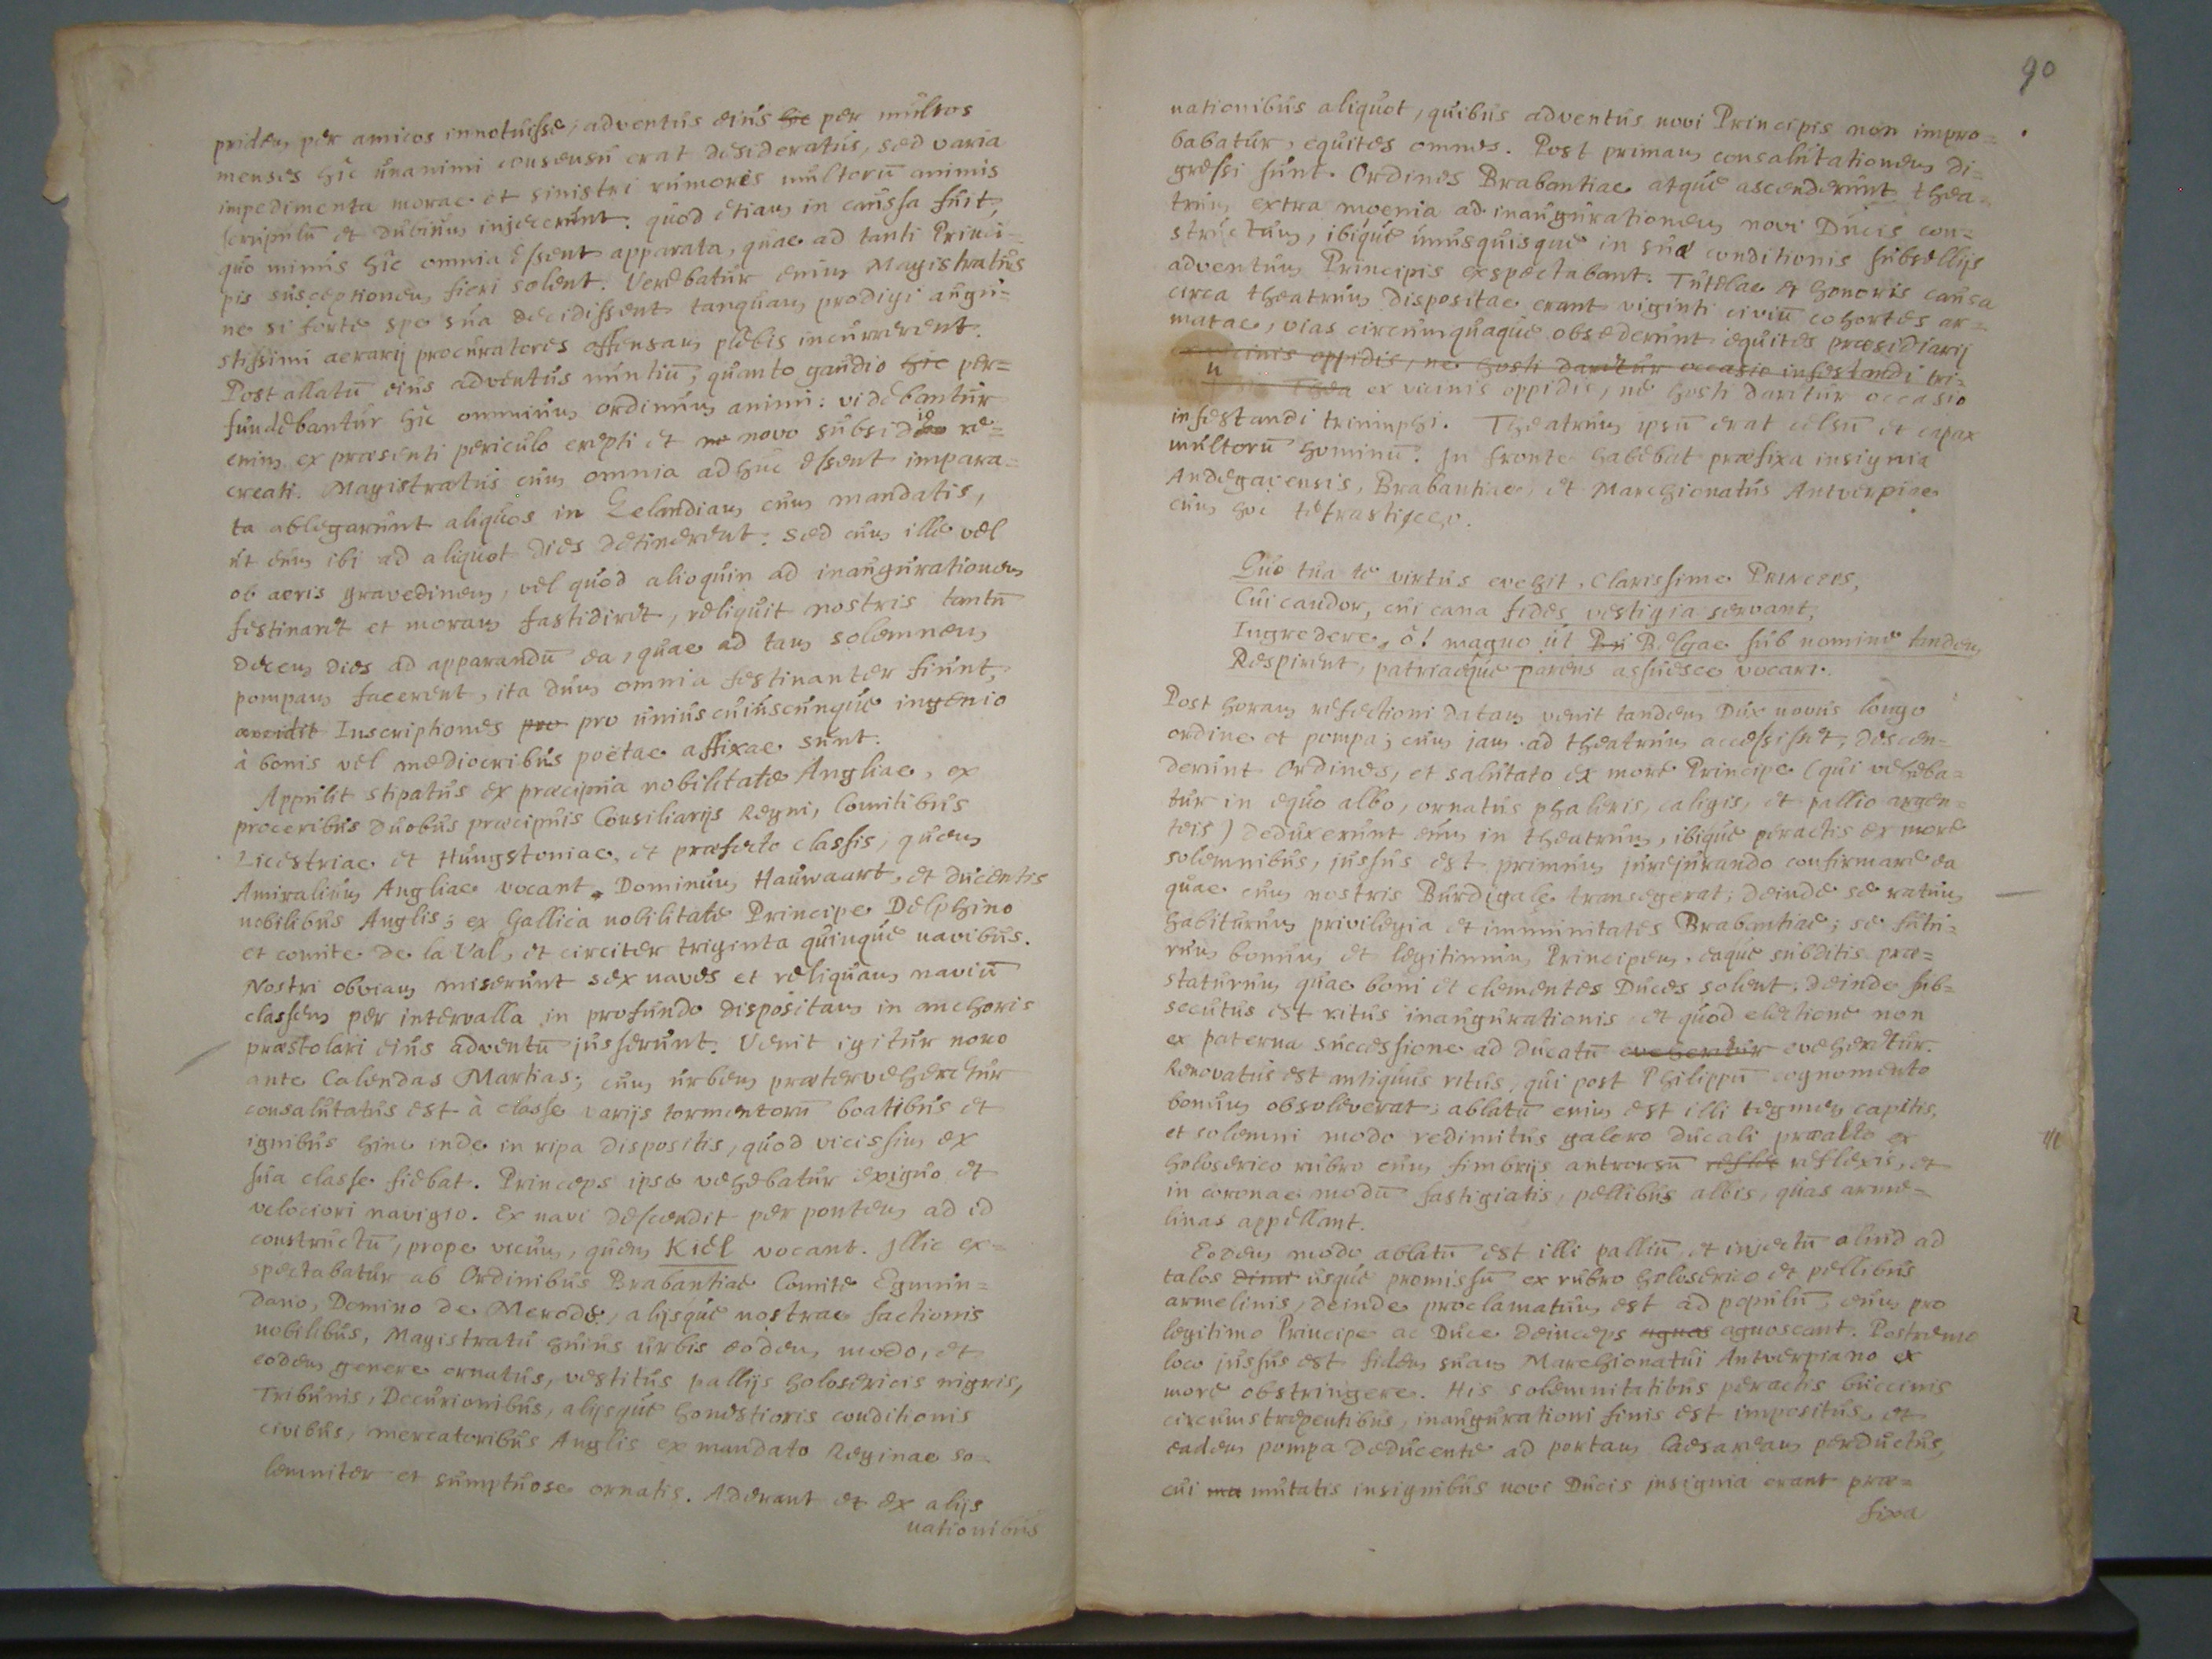 pridem per amicos innotuisse; adventus eius hic per multos
menses hîc unanimi consensu erat desideratus, sed varia
impedimenta morae et sinistri rumores multorū animis
scrupulū et dubium injecerunt: quod etiam in caussa fuit,
quo minus hîc omnia essent apparata, quae ad tanti Princi-
pis susceptionem fieri solent. Verebatur enim Magistratus
ne si forte spe sua decidissent tanquam prodigi angu-
stissimi aerarij procuratores offensam plebis incurrerent.
Post allatū eius adventus nuntiū, quanto gaudio hic per=
fundebantur hîc omnium ordinum animi: videbantur
enim ex praesenti periculo erepti et no novo subsidio re=
creati. Magistratus cum omnia adhuc essent impara=
ta ablegarunt aliquos in Zelandiam cum mandatis,
ut eum ibi ad aliquot dies detinerent: sed cum ille vel
ob aeris gravedinem, vel quod alioquin ad inaugurationem
festinaret et moram fastidiret, reliquit nostris tantū
decem dies ad apparandū ea, quae ad tam solemnem
pompam facerent, ita dum omnia festinanter fiunt,
accidit Inscriptiones pro pro uniuscuiuscunque ingenio
à bonis vel mediocribus poëtae affixae sunt.
Appulit stipatus ex praecipua nobilitate Angliae, ex
proceribus duobus praecipuis Consiliarijs Regni, Comitibus
Licestriae et Hungstoniae, et praefecto classis, quem
Amiralium Angliae vocant, Dominum Hauwaart, et ducentis
nobilibus Anglis; ex Gallica nobilitate Principe Delphino
et comite de la Val, et circiter triginta quinque navibus.
Nostri obviam miserunt sex naves et reliquam naviū
classem per intervalla in profundo dispositam in anchoris
praestolari eius adventū jusserunt. Venit igitur nono
ante Calendas Martias; cum urbem praeterveheretur
consalutatus est à classe varijs tormentorū boatibus et
ignibus hinc inde in ripa dispositis, quod vicissim ex
sua classe fiebat. Princeps ipse vehebatur exiguo et
velociori navigio. Ex navi descendit per pontem ad id
constructū, prope vicum, quem Kiel vocant. Illic ex=
spectabatur ab Ordinibus Brabantiae Comite Egmun=
dano, Domino de Merode, alijsque nostrae factionis
nobilibus, Magistratu huius urbis eodem modo, et
eodem genere ornatus, vestitus pallijs holosericis nigris,
Tribunis, Decurionibus, alijsque honestioris conditionis
civibus, mercatoribus Anglis ex mandato Reginae so-
lemniter et sumptuose ornatis. Aderant et ex alijs
nationibus
90
nationibus aliquot, quibus adventus novi Principis non impro=
babatur, equites omnes. Post primam consalutationem di=
gressi sunt. Ordines Brabantiae atque ascenderunt thea=
trum extra moenia ad inaugurationem novi Ducis con=
structum, ibique unusquisque in suae conditionis subsellijs
adventum Principis exspectabant. Tutelae et honoris causa
circa theatrum dispositae erant viginti civiū cohortes ar=
matae, vias circumquaque obsederunt equites praesidiarij
ex vicinis oppidis, ne hosti daretur occasio infestandi tri=
Thea ex vicinis oppidis, ne hosti daretur occasio
infestandi triumphi. Theatrum ipsū erat celsū et capax
multorū hominū. In fronte habebat praefixa insignia
Andegavensis, Brabantiae, et Marchionatus Antverpiae
cum hoc tetrasticho.
Quo tua te virtus evehit, Clarissime Princeps,
Cui candor, cui cana fides vestigia servant,
Ingredere, ô! magno ut Bri Belgae sub nomine tandem
Respirent, patriaeque parens assuesce vocari.
Post horam refectioni datam venit tandem Dux novus longo
ordine et pompa; cum jam ad theatrum accessisset, descen=
derunt Ordines, et salutato ex more Principe (qui veheba=
tur in equo albo, ornatus phaleris, caligis, et pallio argen=
teis) deduxerunt eum in theatrum, ibique peractis ex more
solemnibus, jussus est primum jurejurando confirmare ea
quae cum nostris Burdigalę transegerat; deinde se ratum
habiturum privilegia et immunitates Brabantiae; se futu=
rum bonum et legitimum Principem, eaque subditis prae=
staturum quae boni et clementes Duces solent. deinde sub=
secutus est ritus inaugurationis et quod electione non
ex paterna successione ad ducatū eveheretur eveheretur.
Renovatus est antiquus ritus, qui post Philippū cognomento
bonum obsoleverat; ablatū enim est illi tegmen capitis,
et solemni modo redimitus galero ducali praealto ex
holoserico rubro cum fimbrijs antrorsū refle reflexis, et
in coronae modū fastigiatis, pellibus albis, quas arme=
linas appellant.
Eodem modo ablatū est illi palliū et injectū aliud ad
talos usque promissū ex rubro holoserico et pellibus
armelinis, deinde proclamatum est ad populū, eum pro
legitimo Principe ac Duce deinceps agnos agnoscant. Postremo
loco jussus est fidem suam Marchionatui Antverpiano ex
more obstringere. His solemnitatibus peractis buccinis
circumstrepentibus, inaugurationi finis est impositus, et
eadem pompa deducente ad portam Caesaream perductus,
cui mu mutatis insignibus novi Ducis insignia erant prae=
fixa